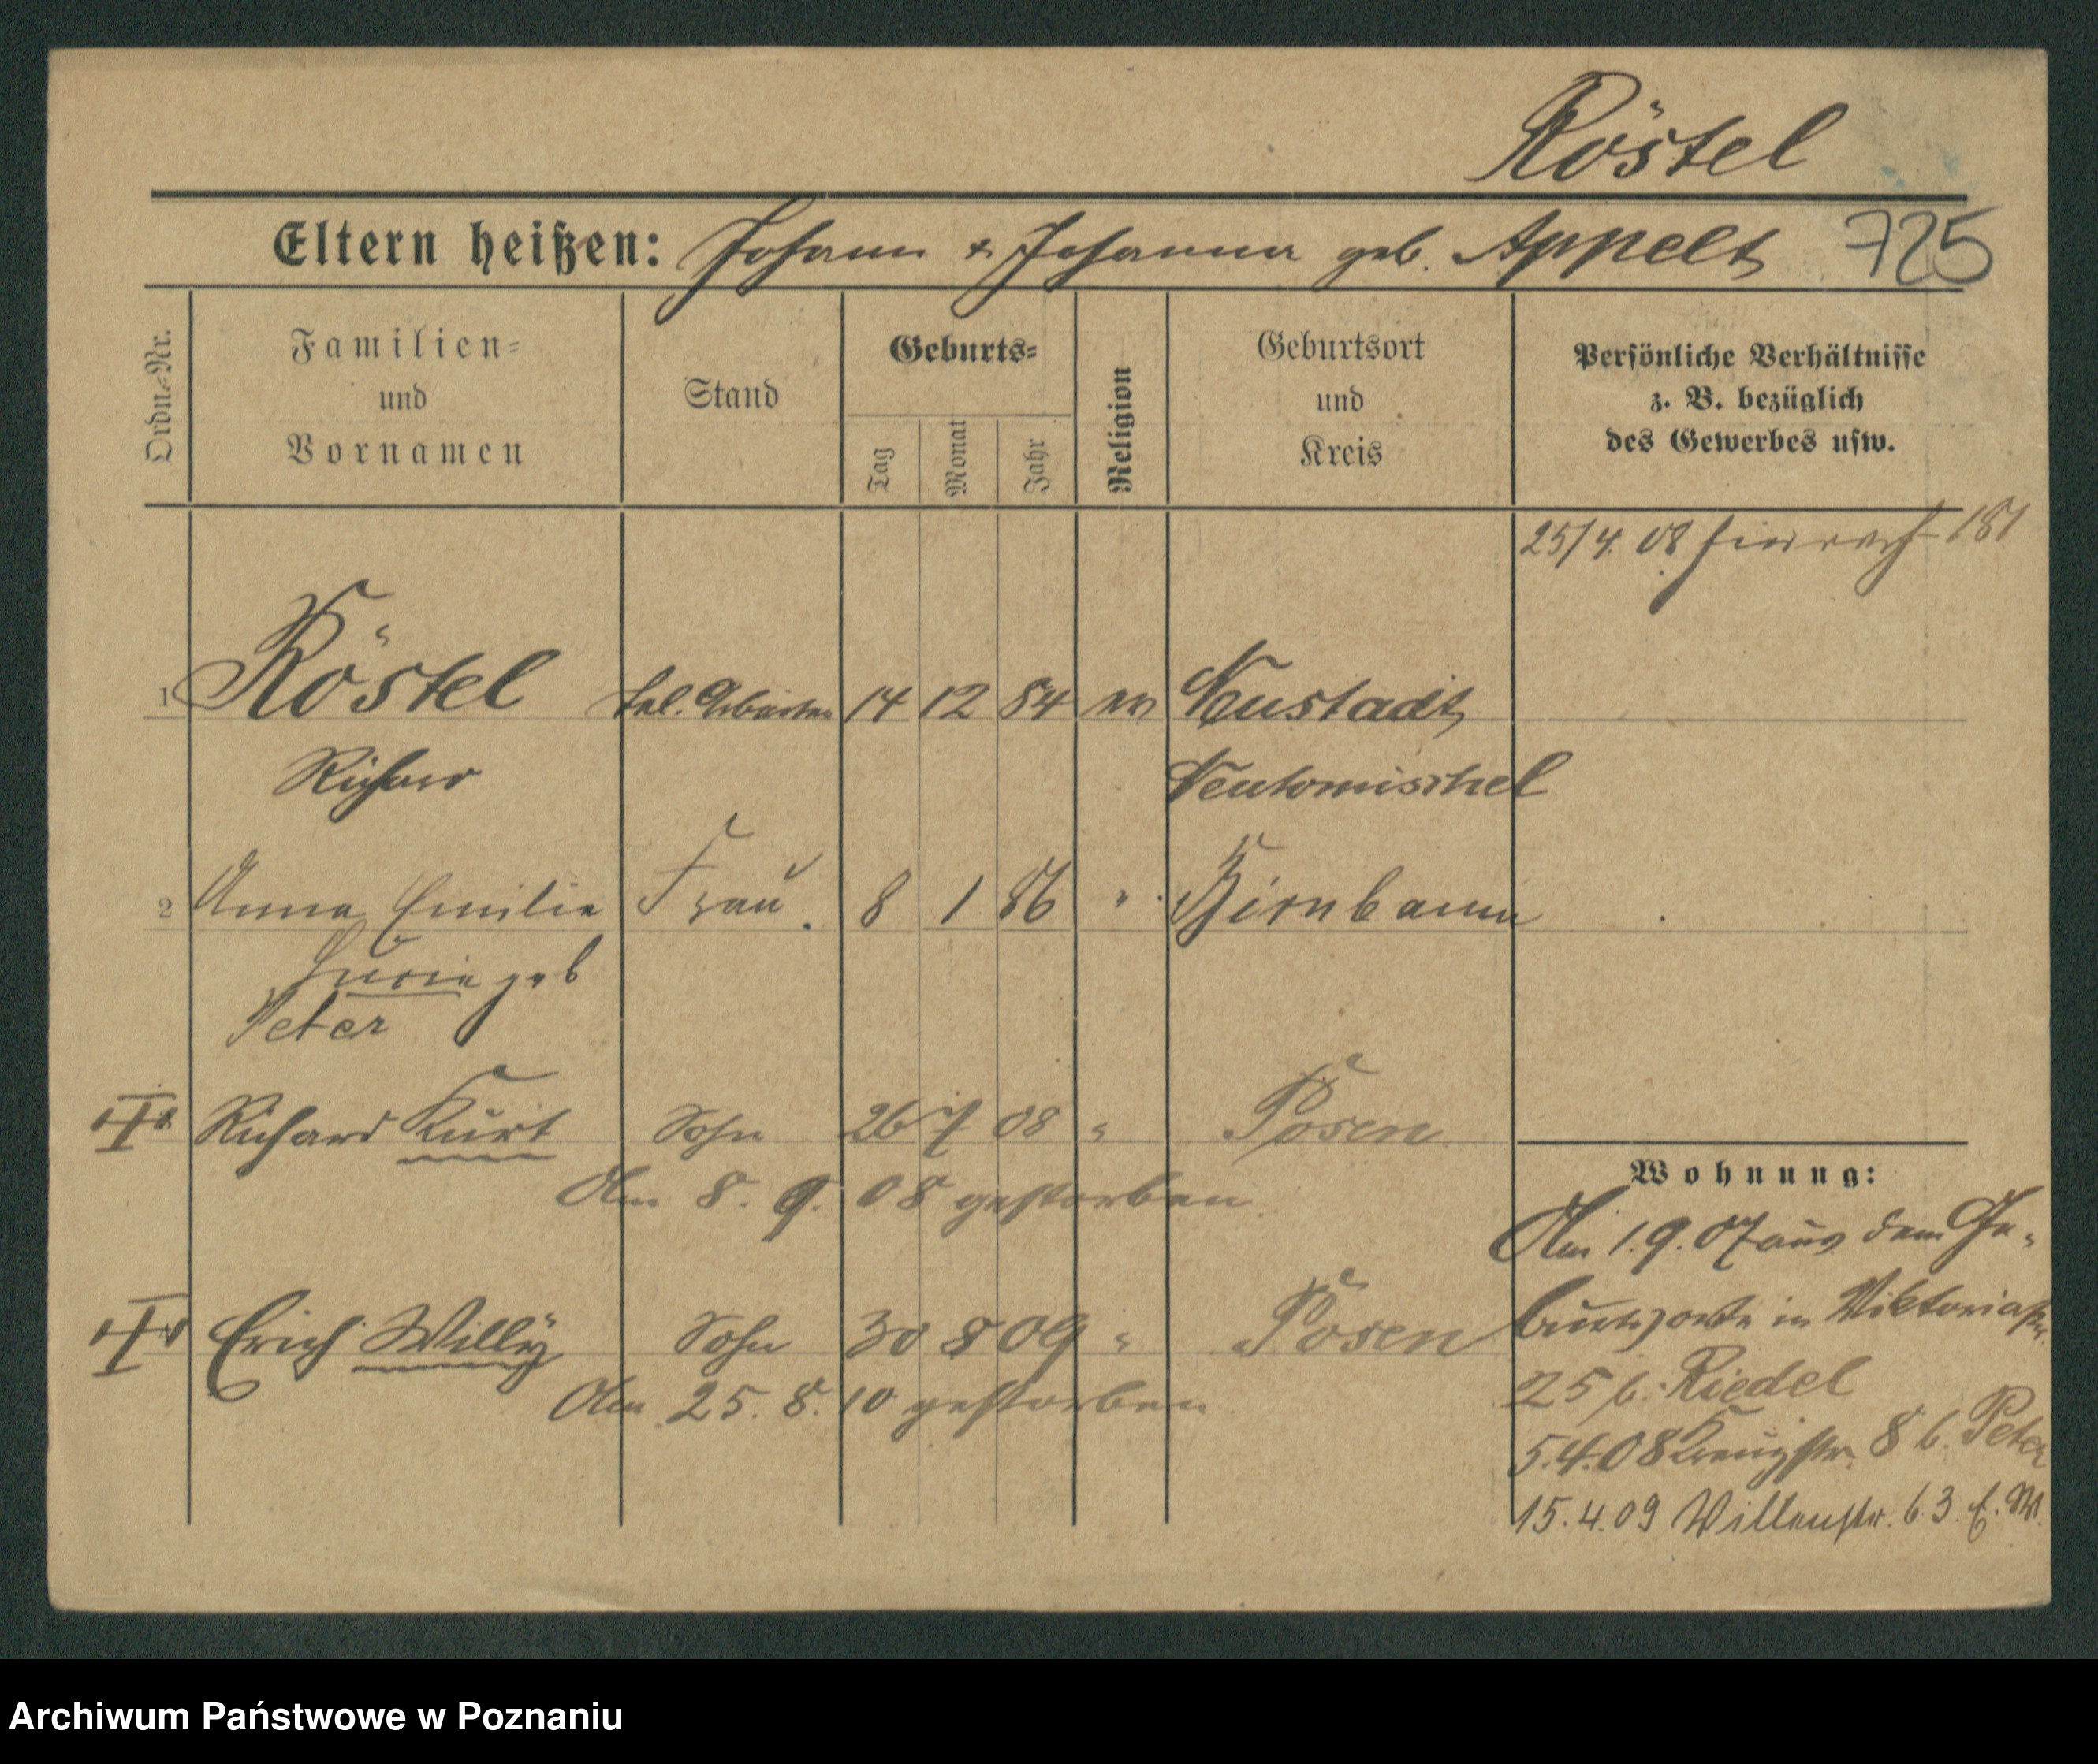 Röstel
Eltern heißen: Johann & Johanna geb. Appelt 725
Ordn.-Nr.
Familien-
und
Vornamen
Stand
Geburts-
Tag
Monat
Jahr
Religion
Geburtsort
und
Kreis
Persönliche Verhältnisse
z. B. bezüglich
des Gewerbes usw.
25/4. 08 181
1 Röstel Arbeiter 14 12 84 ev Neustadt
Richard Neutomischel
2 Anna Emilie Frau. 8 1 86 " Birnbaum
geb
Peter
Richard Kurt Sohn 26 7 08 " Posen
Am 8. 9. 08 gestorben
Erich Willy Sohn 30 8 09 " Posen
Am 25. 8. 10 gestorben
Wohnung:
Am 1. 9. 07 aus dem Ge-
burtsorte in Viktoriastr.
25 b. Riedel
5.4.08 Kreuzstr. 8 b. Peter
15.4.09 63
Archiwum Państwowe w Poznaniu